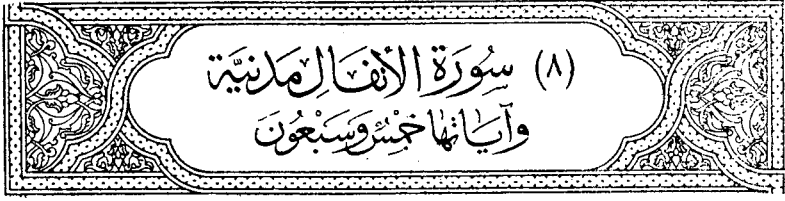 (٨) سُورَة الأنفَالِ مَدَنيَّة
وآيَاتهَا خَمْسٌ وَسَبْعُونَ